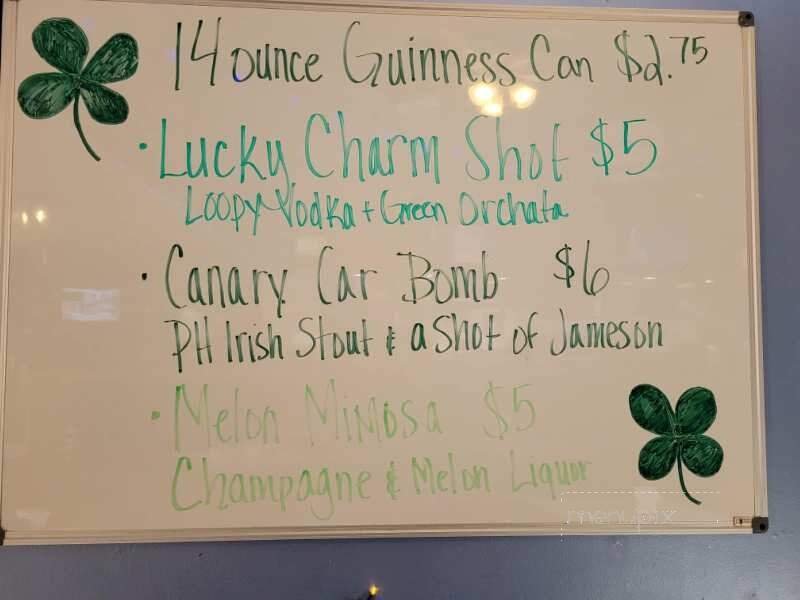 14 ounce Guinness Can $2.75
· Lucky Charm Shot $5
Loopy Vodka + Green Orchata
· Canary Car Bomb $6
PH Irish Stout & a Shot of Jameson
· Melon Mimosa $5
Champagne & Melon Liquor
menupix